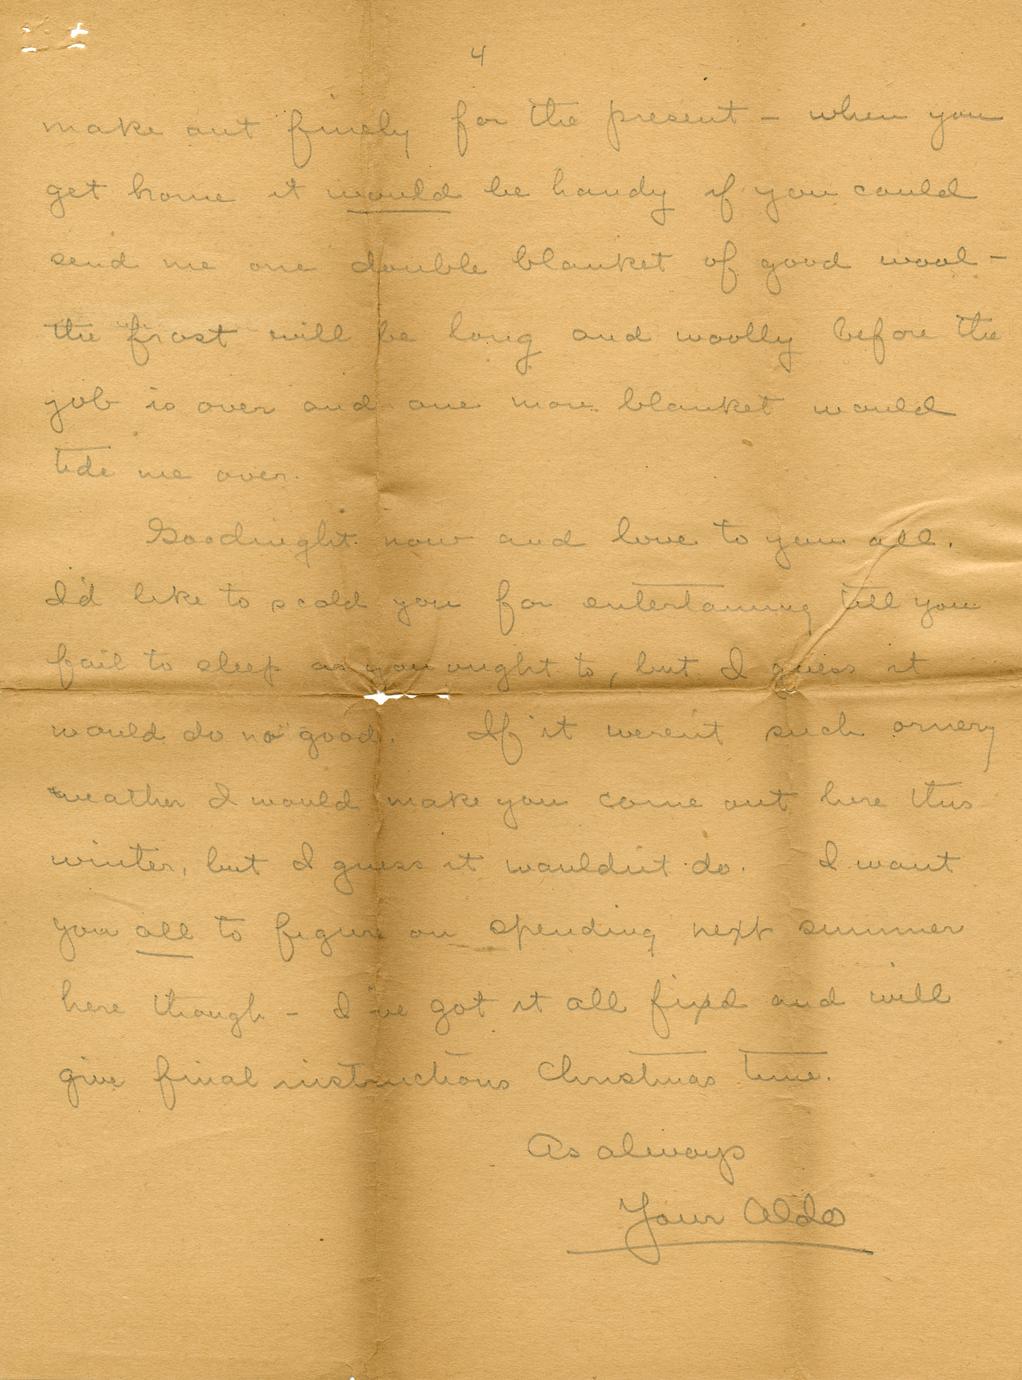 4
make out finely for the present – when you
get home it would be handy if you could
send me one double blanket of good wool –
the frost will be long and woolly before the
job is over and one more blanket would
tide me over.
Goodnight now and love to you all.
I'd like to scold you for entertaining till you
fail to sleep as you ought to, but I guess it
would do no good. If it weren't such ornery
weather I would make you come out here this
winter, but I guess it wouldn't do. I want
you all to figure on spending next summer
here though – I've got it all fixed and will
give final instructions Christmas time.
As always
Your Aldo